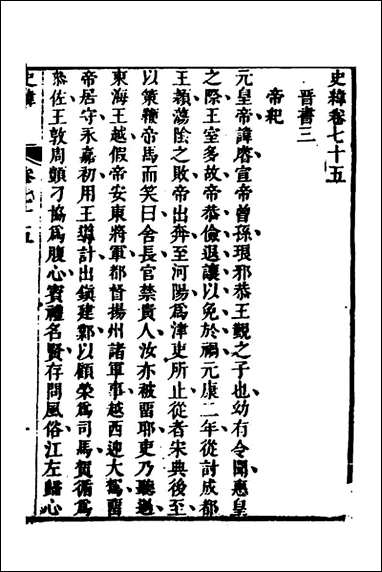 史緯卷七十五
晉書三
帝紀
元皇帝諱睿宣帝曾孫琅邪恭王覲之子也幼有令聞惠皇
之際王室多故帝恭儉退讓以免於禍元康二年從討成都
王穎蕩陰之敗帝出奔至河陽為津吏所止從者宋典後至
以策鞭帝馬而笑曰舍長官禁貴人汝亦被畱耶吏乃聽過
東海王越假帝安東將軍都督揚州諸軍事越西迎大駕畱
帝居守永嘉初用王導計出鎮建鄴以顧榮為司馬賀循為
叅佐王敦周顗刁協為腹心賓禮名賢存問風俗江左歸心
史緯
卷七十五